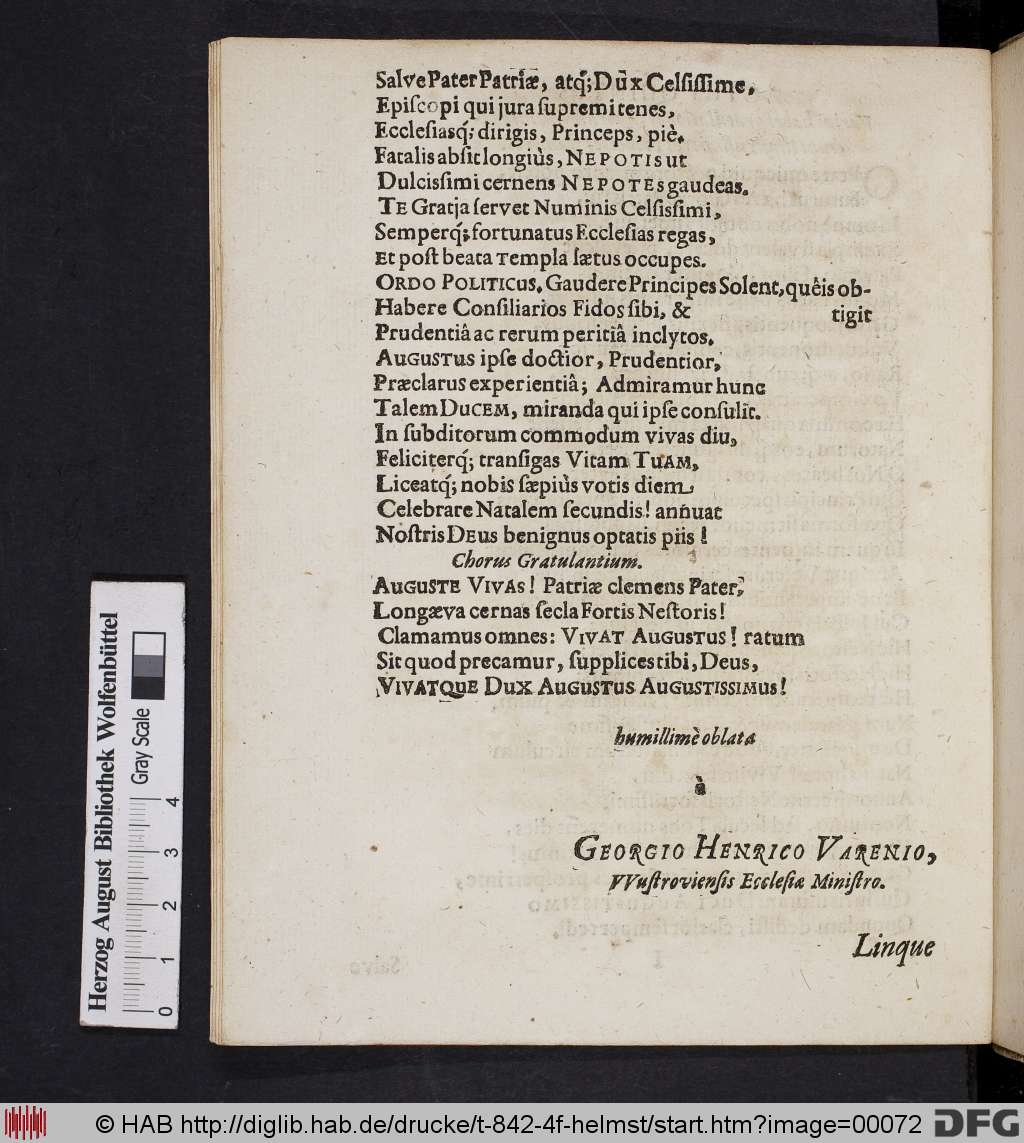 Salve Pater Patriæ, atq́; Dûx Celsissime,
Episcopi qui jura supremi tenes,
Ecclesiasq́; dirigis, Princeps, piè.
Fatalis absit longiùs, NEPOTIS ut
Dulcissimi cernens NEPOTES gaudeas.
TE Gratia servet Numinis Celsissimi,
Semperq́; fortunatus Ecclesias regas,
Et post beata Templa lætus occupes.
ORDO POLITICUS. Gaudere Principes Solent, quêis ob-
Habere Consiliarios Fidos sibi, & tigit
Prudentiâ ac rerum peritiâ inclytos.
AUGUSTUS ipse doctior, Prudentior,
Præclarus experientiâ; Admiramur hunc
Talem DUCEM, miranda qui ipse consulit.
In subditorum commodum vivas diu,
Feliciterq́; transigas Vitam TUAM,
Liceatq́; nobis sæpiùs votis diem
Celebrare Natalem secundis! annuat
Nostris DEUS benignus optatis piis!
Chorus Gratulantium.
AUGUSTE VIVAS! Patriæ clemens Pater,
Longæva cernas secla Fortis Nestoris!
Clamamus omnes: VIVAT AUGUSTUS! ratum
Sit quod precamur, supplices tibi, Deus,
VIVATQUE DUX AUGUSTUS AUGUSTISSIMUS!
humillimè oblata
à
GEORGIO HENRICO VARENIO,
VVustroviensis Ecclesiæ Ministro.
Linque
Herzog August Bibliothek Wolfenbüttel
Gray Scale
0 1 2 3 4
© HAB http://diglib.hab.de/drucke/t-842-4f-helmst/start.htm?image=00072
DFG